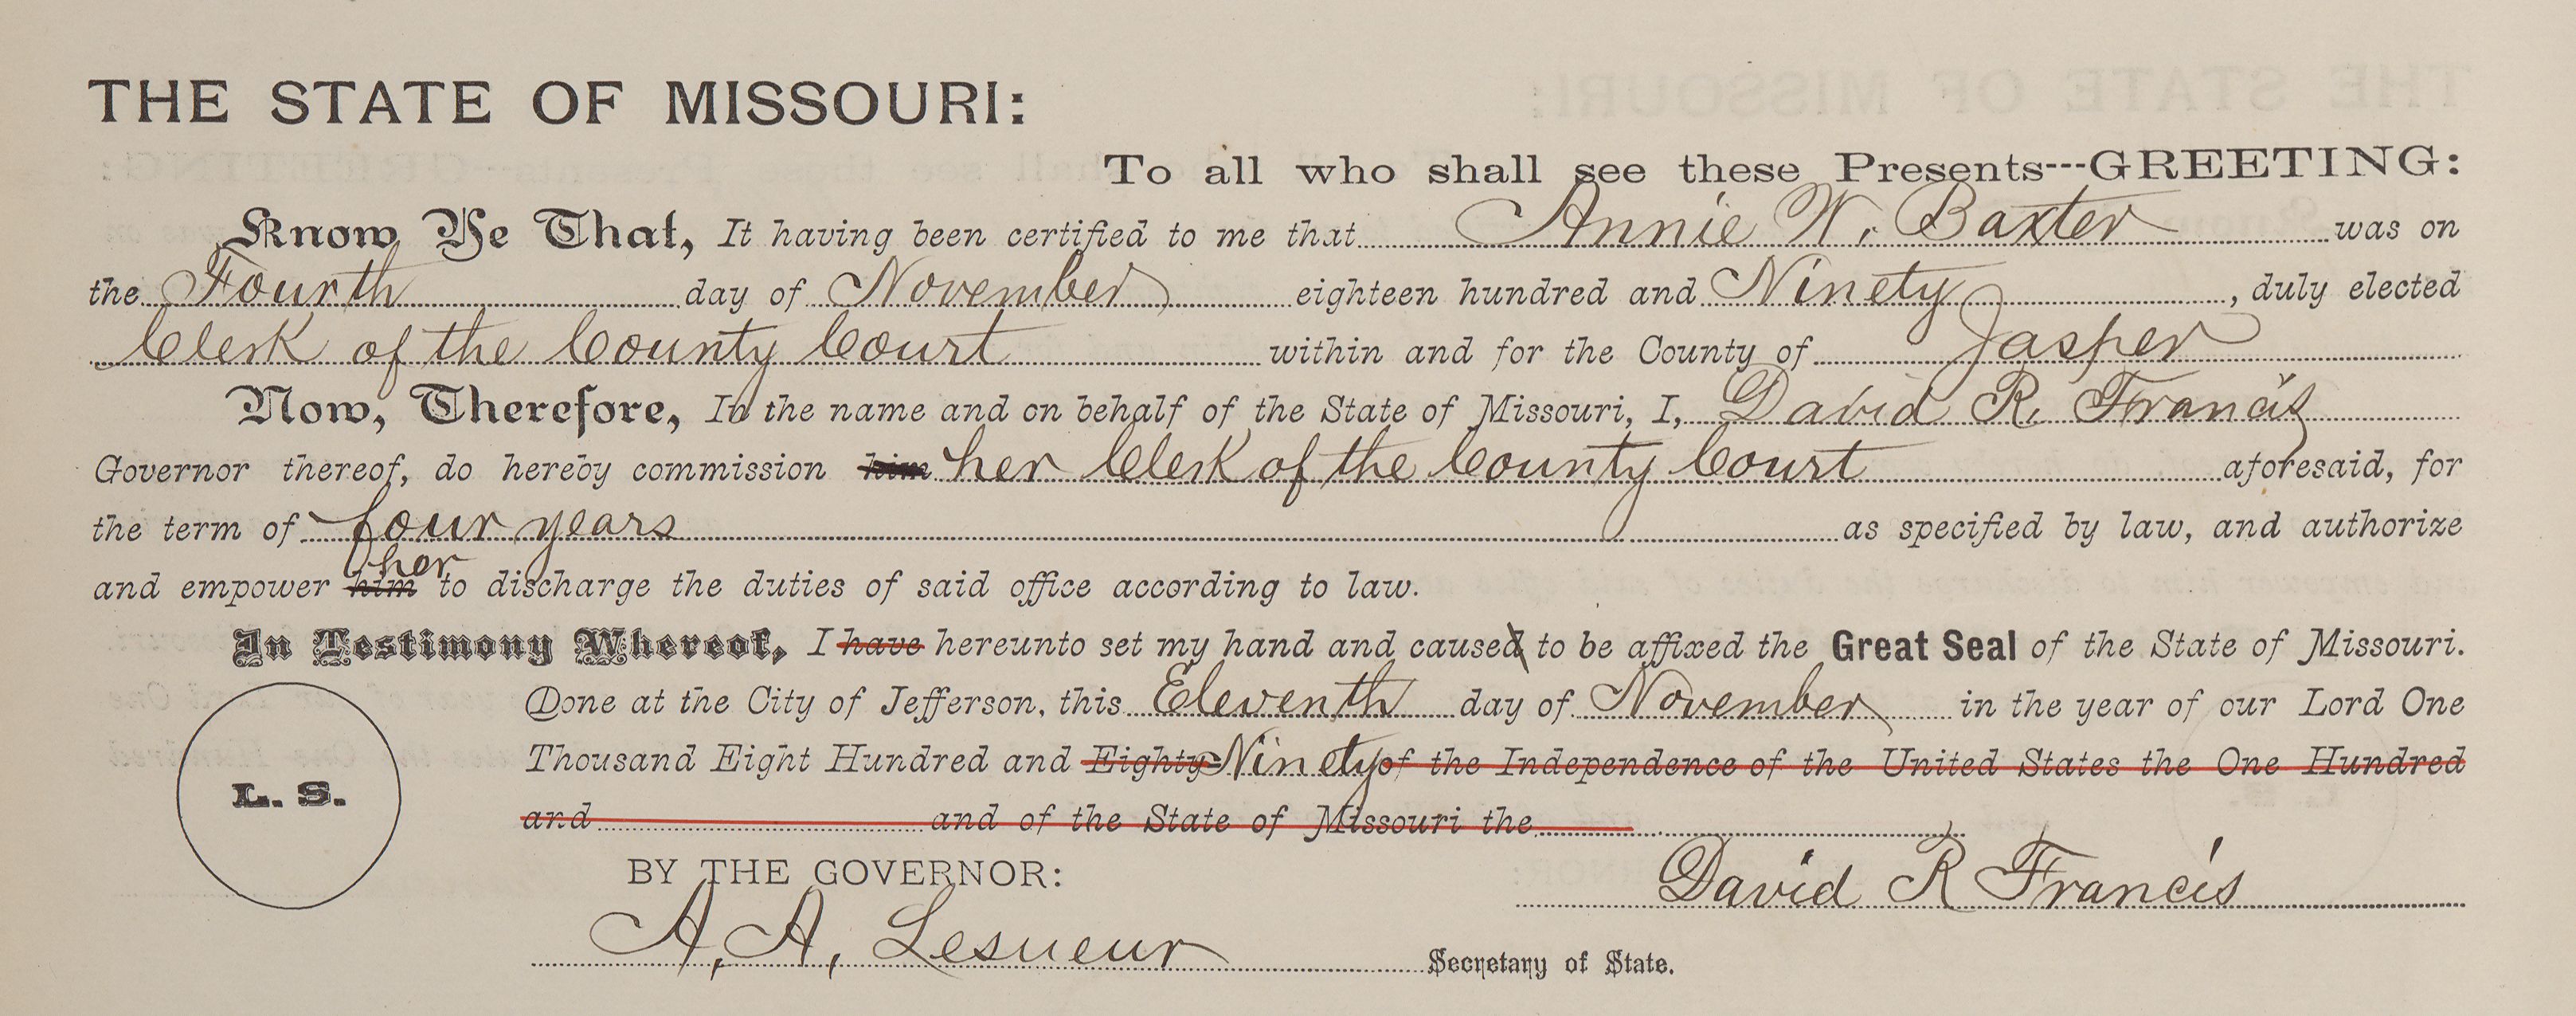 THE STATE OF MISSOURI:
To all who shall see these Presents---GREETING:
Know Ye That, It having been certified to me that Annie W. Baxter was on
the Fourth day of November eighteen hundred and Ninety, duly elected
Clerk of the County Court within and for the County of Jasper
Now, Therefore, In the name and on behalf of the State of Missouri, I, David R. Francis
Governor thereof, do hereby commission him her Clerk of the County Court aforesaid, for
the term of four years as specified by law, and authorize
her
and empower him to discharge the duties of said office according to law.
In Testimony Whereof, I have hereunto set my hand and caused to be affixed the Great Seal of the State of Missouri.
Done at the City of Jefferson, this Eleventh day of November in the year of our Lord One
Thousand Eight Hundred and Eighty Ninety of the Independence of the United States the One Hundred
and and of the State of Missouri the
L. S.
BY THE GOVERNOR:
David R Francis
A. A. Lesueur Secretary of State.